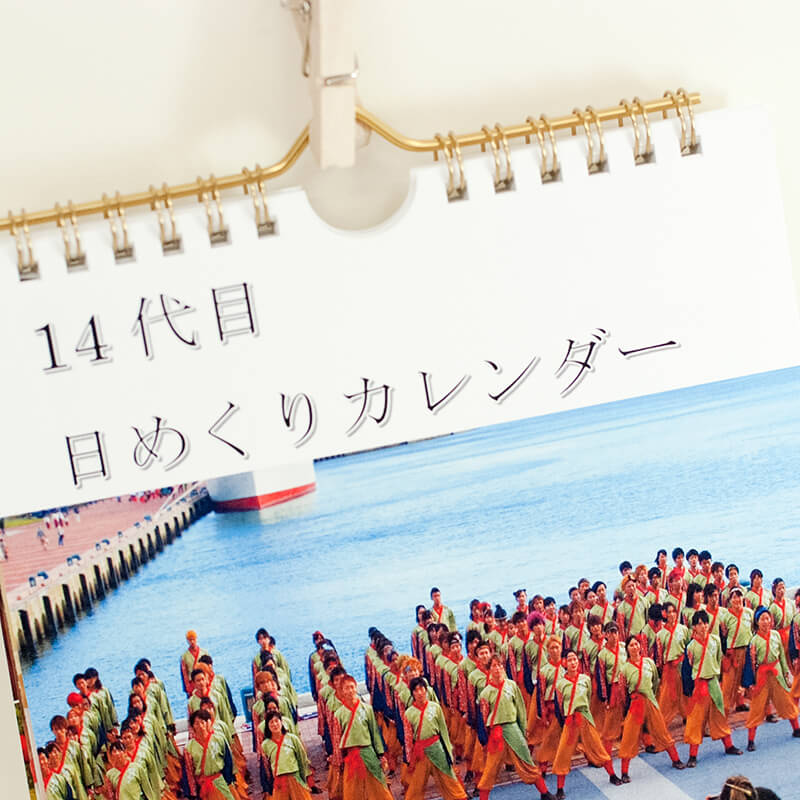 14代目
日めくりカレンダー